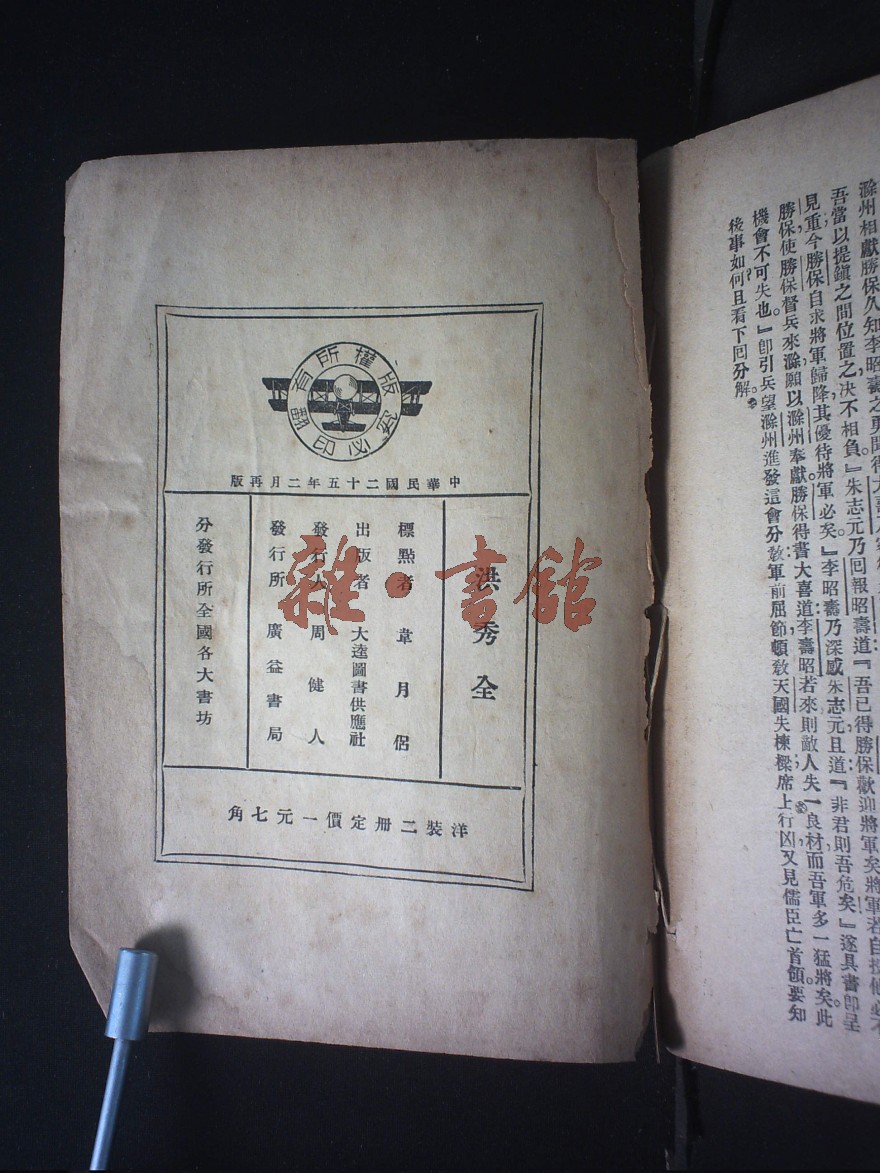 滁州相獻勝保久知李昭壽之勇聞得大喜
吾當以提鎮之間位置之決不相負』朱志元乃回報昭壽道『吾已得勝保歡迎將軍矣將軍若自投他必不
見重今勝保自求將軍歸降其優待將軍必矣』李昭壽乃深感朱志元且道『非君則吾危矣』遂具書卽呈
勝保使勝保督兵來滁願以滁州奉獻勝保得書大喜道李壽昭若來則敵人失一良材而吾軍多一猛將矣此
機會不可失也』卽引兵望滁州進發這會分敎軍前屈節頓敎天國失棟樑席上行凶又見儒臣亡首領要知
後事如何且看下回分解
版權所有
翻印必究
中華民國二十五年二月再版
洪秀全
標點者 韋月侶
出版者 大達圖書供應社
發行人 周健人
發行所 廣益書局
分發行所全國各大書坊
洋裝二册定價一元七角
雜·書館